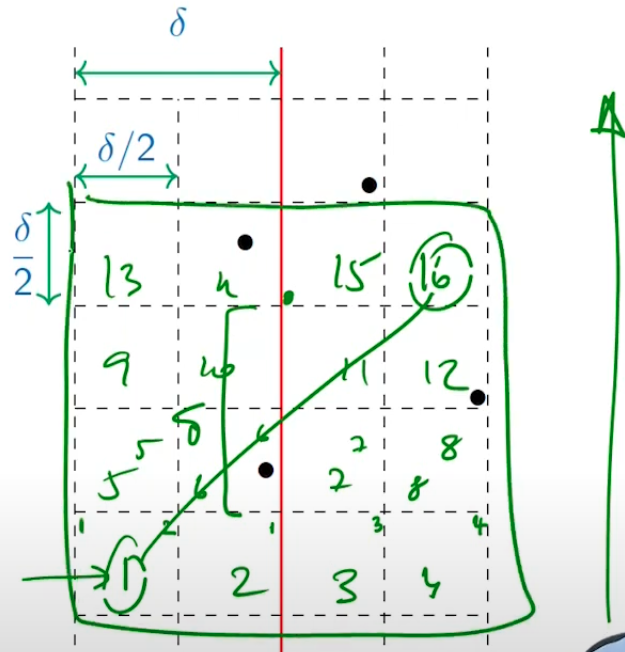 δ
δ/2
δ/2
13 15 16
9 11 12
5 5 7 8
5 6 7 8
1 2 1 3 4
1 2 3 4